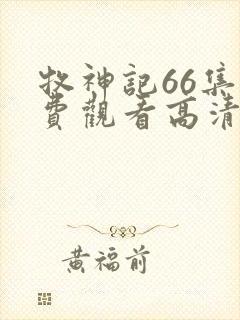 牧神記66集
費觀看高清
黃福前